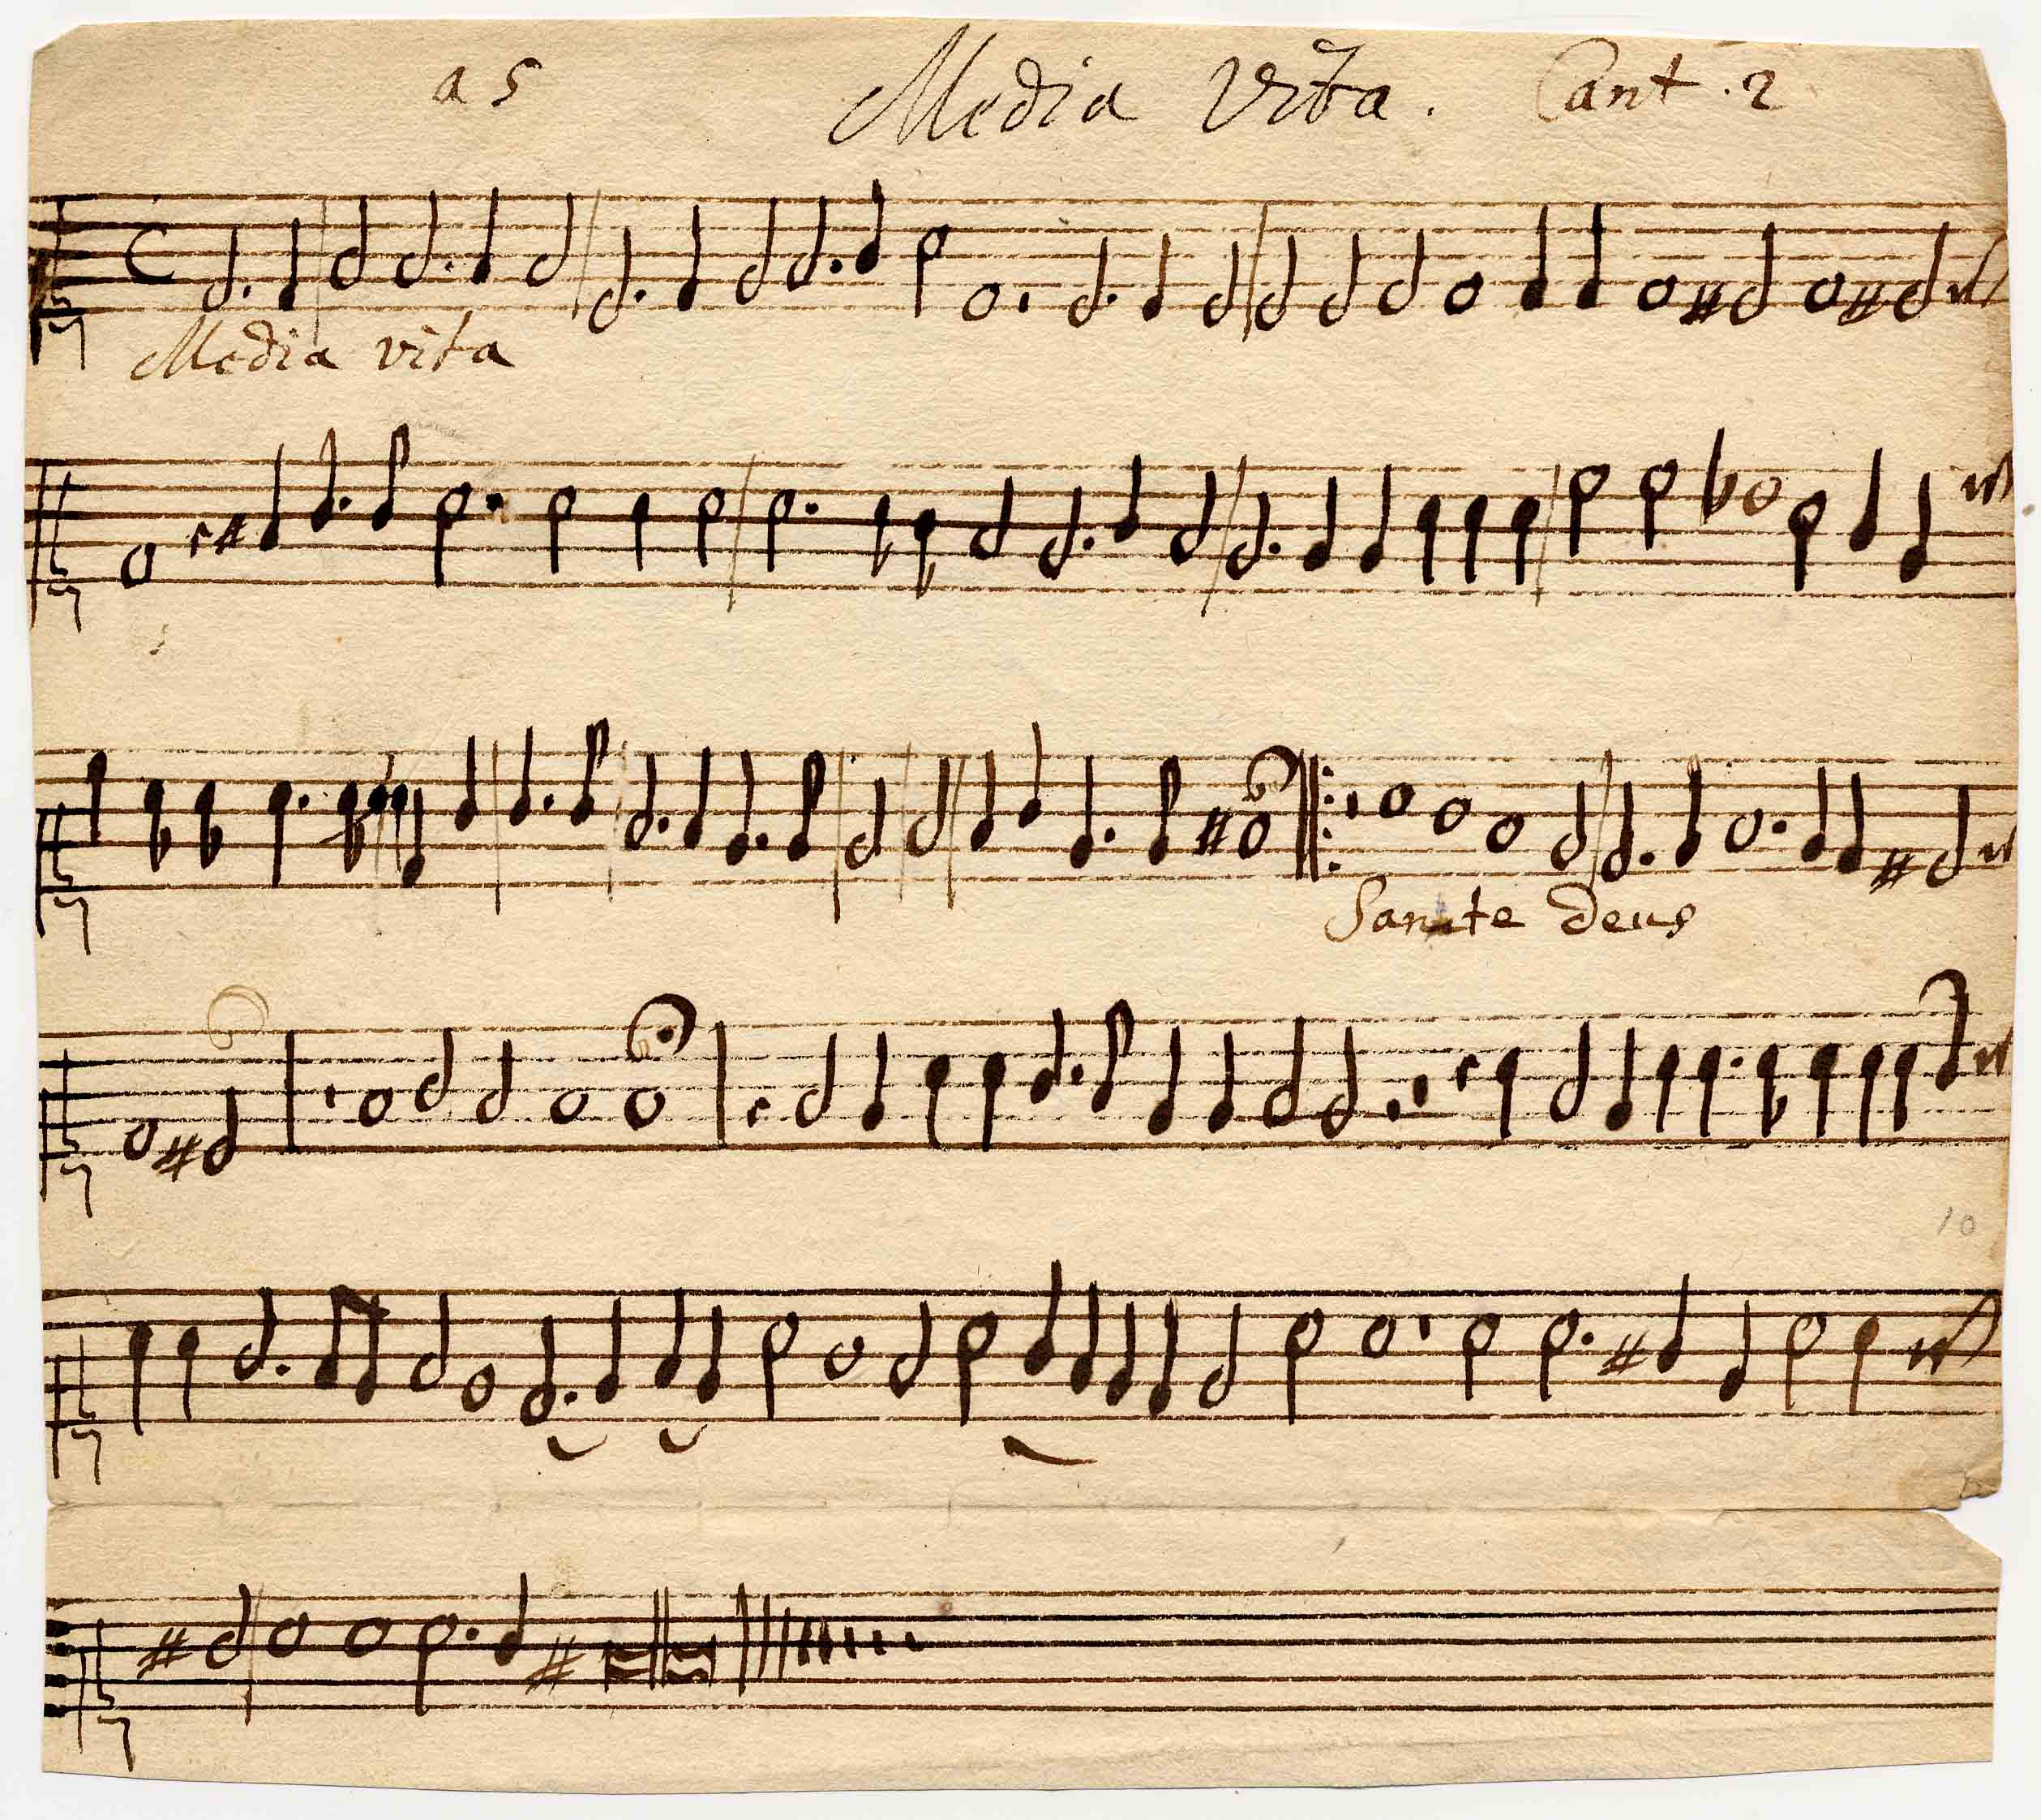 a 5 Media Vita. Cant. 2
Media vita
Sancte Deus
10